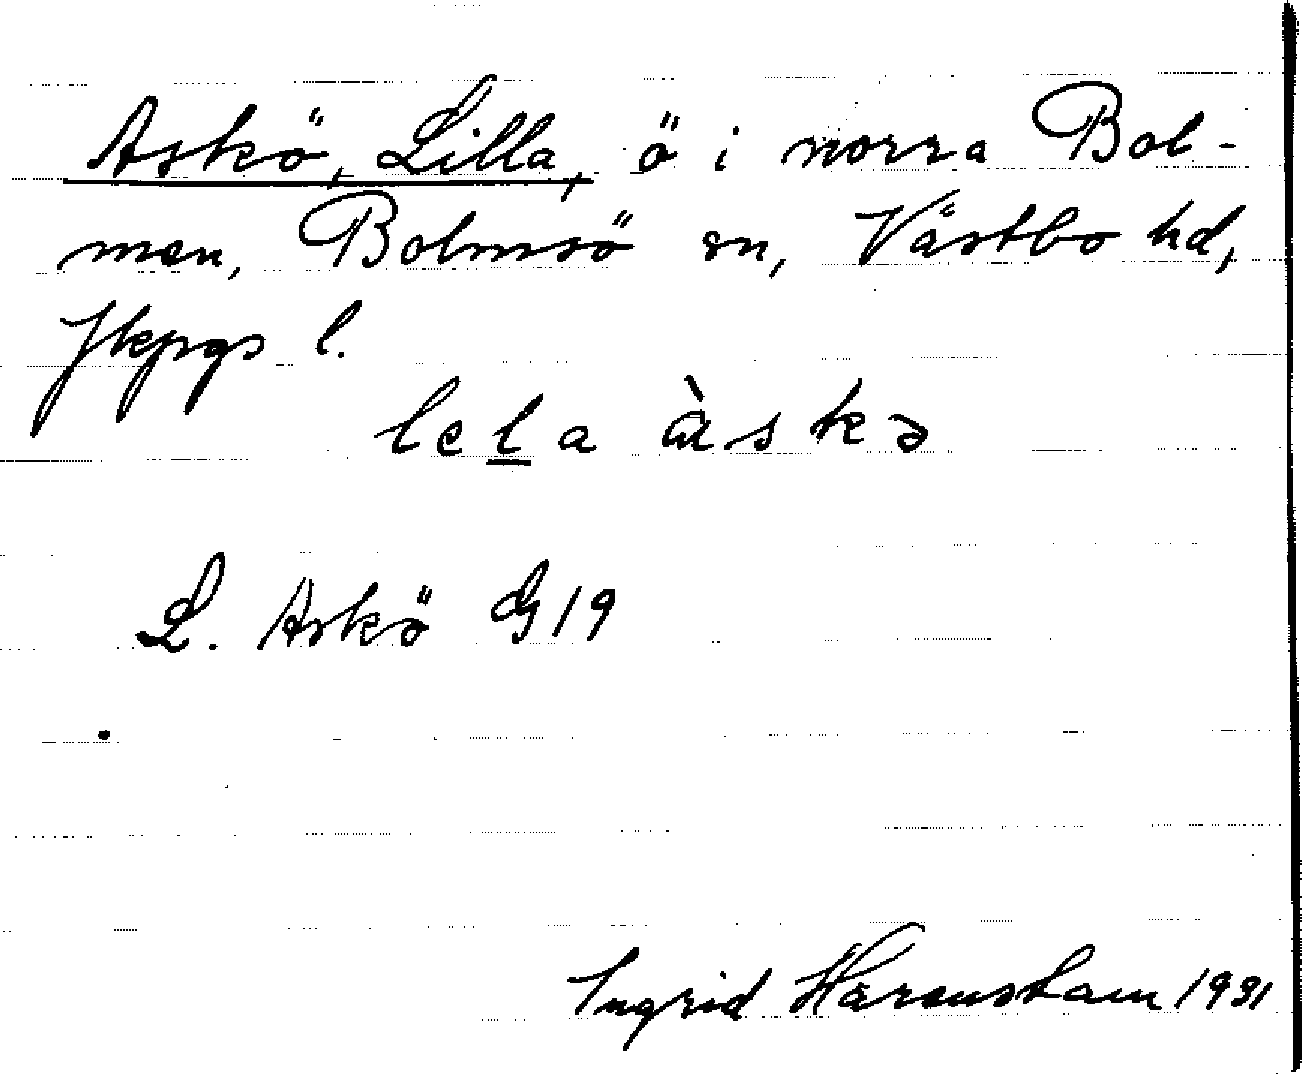 Askö, Lilla, ö i norra Bol-
men, Bolmsö sn, Västbo hd,
Jkpgs l.
lela àskə
L. Askö G 19
Ingrid Härenstam 1931